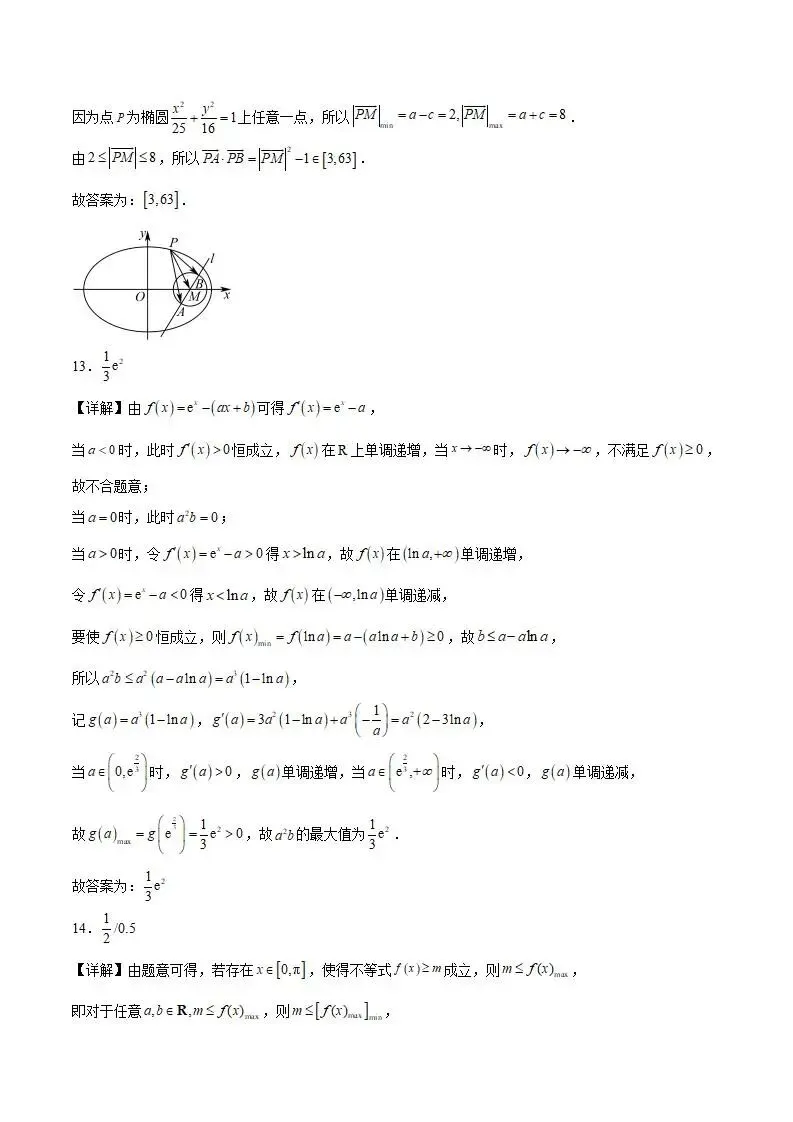 因为点 P 为椭圆 x²/25 + y²/16 = 1 上任意一点，所以 |PM|min = a − c = 2, |PM|max = a + c = 8．
由 2 ≤ |PM| ≤ 8，所以 PA · PB = |PM|² − 1 ∈ [3,63]．
故答案为：[3,63]．
y
P
l
B
O
M
x
A
13．1/3 e²
【详解】由 f(x) = eˣ − (ax + b) 可得 f′(x) = eˣ − a，
当 a < 0 时，此时 f′(x) > 0 恒成立，f(x) 在 R 上单调递增，当 x → −∞ 时，f(x) → −∞，不满足 f(x) ≥ 0，
故不合题意；
当 a = 0 时，此时 a²b = 0；
当 a > 0 时，令 f′(x) = eˣ − a > 0 得 x > ln a，故 f(x) 在 (ln a, +∞) 单调递增，
令 f′(x) = eˣ − a < 0 得 x < ln a，故 f(x) 在 (−∞, ln a) 单调递减，
要使 f(x) ≥ 0 恒成立，则 f(x)min = f(ln a) = a − (a ln a + b) ≥ 0，故 b ≤ a − a ln a，
所以 a²b ≤ a²(a − a ln a) = a³(1 − ln a)，
记 g(a) = a³(1 − ln a)，g′(a) = 3a²(1 − ln a) + a³(−1/a) = a²(2 − 3ln a)，
当 a ∈ (0, e^(2/3)) 时，g′(a) > 0，g(a) 单调递增，当 a ∈ (e^(2/3), +∞) 时，g′(a) < 0，g(a) 单调递减，
故 g(a)max = g(e^(2/3)) = 1/3 e² > 0，故 a²b 的最大值为 1/3 e²．
故答案为：1/3 e²
14．1/2 /0.5
【详解】由题意可得，若存在 x ∈ [0, π]，使得不等式 f(x) ≥ m 成立，则 m ≤ f(x)max，
即对于任意 a, b ∈ R, m ≤ f(x)max，则 m ≤ [f(x)max]min，